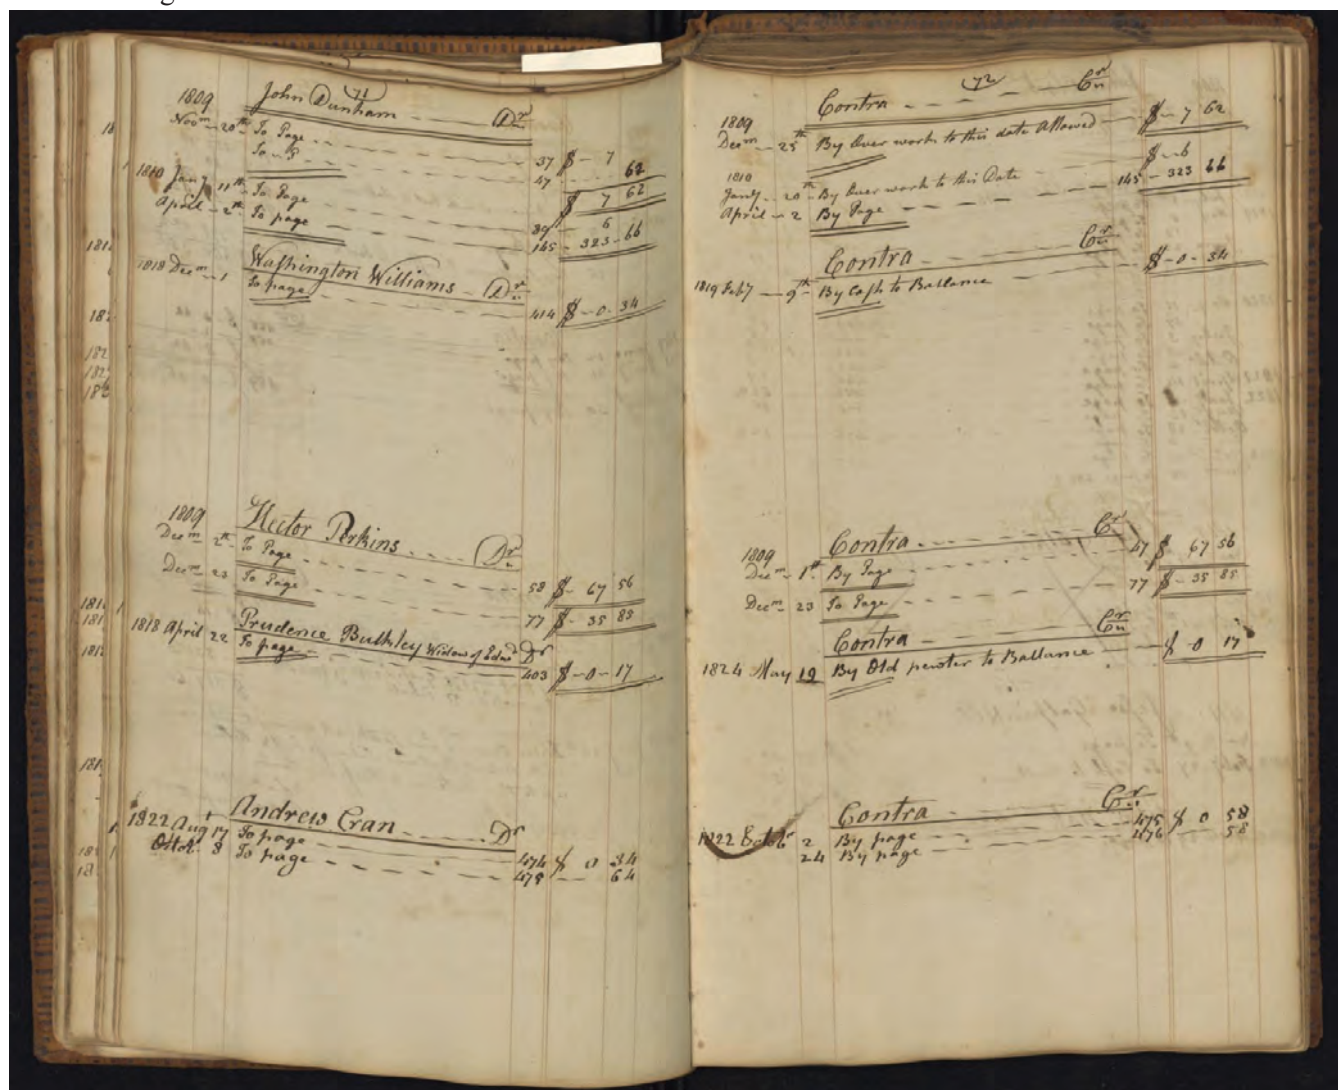 71
1809 John Dunham Dr
Novm 20th To Page 37 $ - 7
To - S 47 62
$ 7 62
1810 Jany 11th To Page 89 6
April 2th To page 145 - 323 - 66
Washington Williams Dr
1818 Decm 1 To page 414 $ - 0 - 34
1809 Hector Perkins Dr
Decm 2th To Page 58 $ - 67 56
Decm 23 To Page 77 $ - 35 85
Prudence Bulkley Widow of Edmd Dr
1818 April 22 To page 403 $ - 0 - 17
Andrew Cran Dr
1822 Augt 17 To page 474 $ 0 34
Octor 8 To page 475 64
72
Contra Cr
1809
Decm 25th By Over work to this date Allowed $ - 7 62
1810
Jany 20th By Over work to this Date $ - 6
April 2 By Page 145 - 323 66
Contra Cr
1819 Feby 9th By Cash to Ballance $ - 0 - 34
1809 Contra Cr
Decm 1st By Page 47 $ 67 56
Decm 23 To Page 77 $ - 35 85
Contra Cr
1824 May 19 By Old pewter to Ballance $ - 0 17
Contra Cr
1822 2 By page 475 $ 0 58
24 By page 476 58